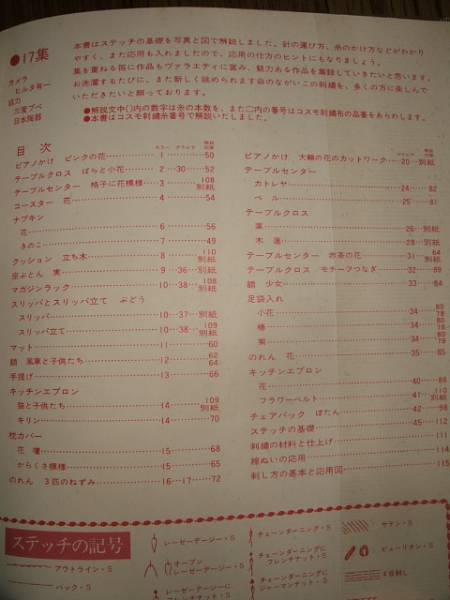 ●17集
カメラ
ヒルタ有一
協力
三愛プペ
日本陶器
本書はステッチの基礎を写真と図で解説しました。針の運び方、糸のかけ方などがわかり
やすく、また応用も入れましたので、応用の仕方のヒントにもなりましょう。
集を重ねる毎に作品もヴァラエティに富み、魅力ある作品を集録していきたいと思います。
お洗濯するたびに、また新しく眺められます命のながいこの刺繍を、多くの方に楽しんで
いただきたいと願っております。
●解説文中( )内の数字は糸の本数を、また□内の番号はコスモ刺繍布の品番をあらわします。
●本書はコスモ刺繍糸番号で解説いたしました。
目次
ピアノかけ ピンクの花 1 50
テーブルクロス ばらと小花 2 30 52
テーブルセンター 格子に花模様 3 108 別紙
コースター 花 4 54
ナプキン
花 6 56
きのこ 7 49
クッション 立ち木 8 110 別紙
座ぶとん 実 9 36 別紙
マガジンラック 10 38 108 別紙
スリッパとスリッパ立て ぶどう
スリッパ 10 37 別紙
スリッパ立て 10 38 109 別紙
マット 11 60
額 風車と子供たち 12 62 64
手提げ 13 66
キッチンエプロン
猫と子供たち 14 109 別紙
キリン 14 70
枕カバー
花壇 15 68
からくさ模様 15 65
のれん 3匹のねずみ 16 17 72
ピアノかけ 大輪の花のカットワーク 20 別紙
テーブルセンター
カトレヤ 24 82
ベル 25 81
テーブルクロス
葉 26 別紙
木蓮 28 別紙
テーブルセンター お茶の花 31 64 別紙
テーブルクロス モチーフつなぎ 32 89
額 少女 33 84
足袋入れ
小花 34 80 78
椿 34 80 78
菊 34 80 78
のれん 花 35 85
キッチンエプロン
花 40 88
フラワーベルト 41 110 別紙
チェアバック ぼたん 42 98
ステッチの基礎 45 112
刺繍の材料と仕上げ 111
綿ぬいの応用 114
刺し方の基本と応用図 115
ステッチの記号
アウトライン・S
バック・S
レーゼーデージー・S
オープン
レーゼーデージー・S
レーゼーデージーに
フレンチナット・S
チェーンダーニング・S
チェーンダーニングに
フレンチナット・S
チェーンダーニングに
ジャーマンナット・S
サテン・S
ビュリオン・S